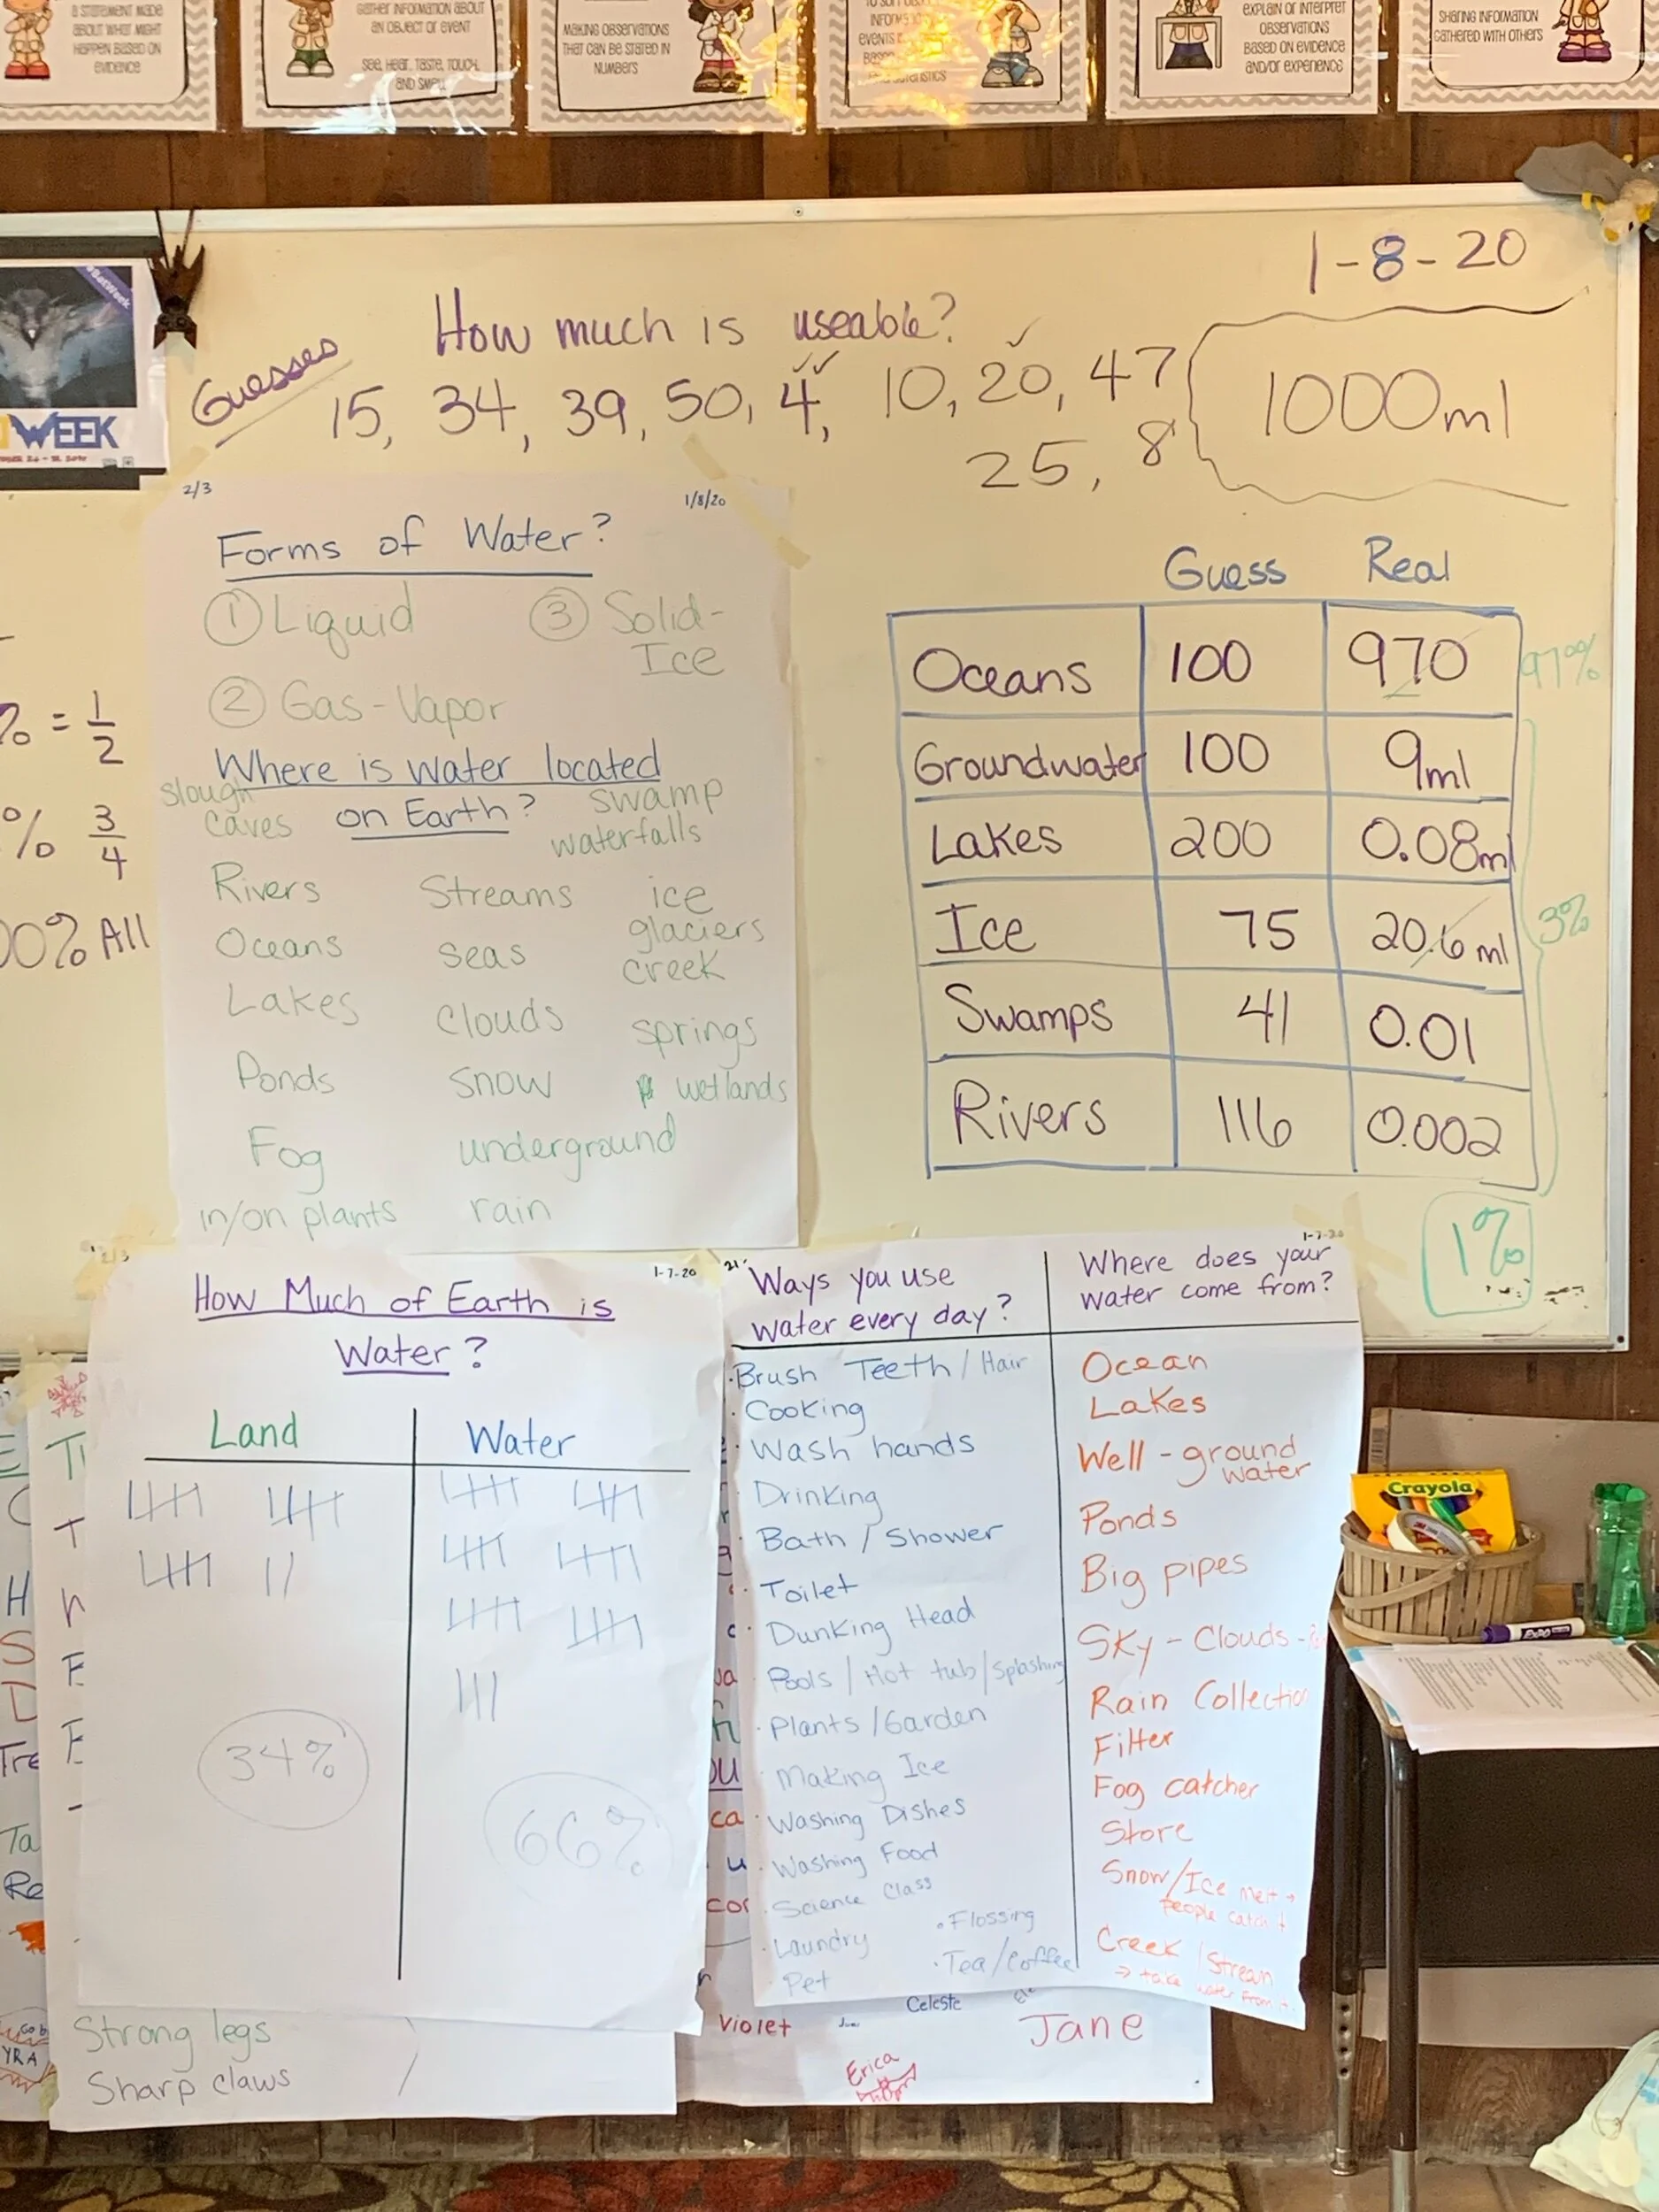 A STATEMENT MADE
ABOUT WHAT MIGHT
HAPPEN BASED ON
EVIDENCE
GATHER INFORMATION ABOUT
AN OBJECT OR EVENT
SEE, HEAR, TASTE, TOUCH,
AND SMELL
MAKING OBSERVATIONS
THAT CAN BE STATED IN
NUMBERS
EVENTS
EXPLAIN OR INTERPRET
OBSERVATIONS
BASED ON EVIDENCE
AND/OR EXPERIENCE
SHARING INFORMATION
GATHERED WITH OTHERS
#BatWeek
WEEK
1-8-20
How much is useable?
Guesses
15, 34, 39, 50, 4, 10, 20, 47
25, 8
1000ml
% = 1/2
% 3/4
00% All
2/3 1/8/20
Forms of Water?
① Liquid ③ Solid-
Ice
② Gas-Vapor
Where is water located
on Earth?
slough
caves
swamp
waterfalls
Rivers Streams ice
glaciers
Oceans seas creek
Lakes clouds springs
Ponds snow wetlands
Fog underground
in/on plants rain
Guess Real
Oceans 100 970 97%
Groundwater 100 9ml
Lakes 200 0.08ml
Ice 75 20.6 ml 3%
Swamps 41 0.01
Rivers 116 0.002
1%
2/3 1-7-20
How Much of Earth is
Water?
Land Water
34% 66%
Strong legs
Sharp claws
Ways you use
water every day?
· Brush Teeth / Hair
· Cooking
· Wash hands
· Drinking
· Bath / Shower
· Toilet
· Dunking Head
· Pools / Hot tub / Splashing
· Plants / Garden
· Making Ice
· Washing Dishes
· Washing Food
· Science Class
· Laundry
· Pet
· Flossing
· Tea/Coffee
Where does your
water come from?
Ocean
Lakes
Well - ground
water
Ponds
Big pipes
Sky - Clouds -
Rain Collection
Filter
Fog catcher
Store
Snow/Ice melt →
people catch it
Creek / Stream
→ take
water from it.
Celeste
Violet
Jane
Erica
Crayola
EXPO